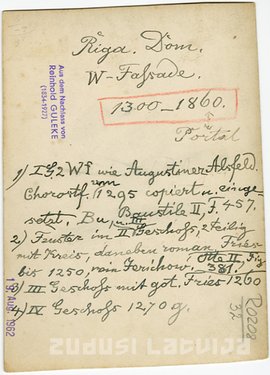 Riga. Dom.
W-Fassade.
1300-1860.
Portal
1) I G. 2 W F wie Augustiner Alsfeld.
Chorostf. vom 1295 copiert u. einge
setzt. Baustile II, F. 457.
2) Fenster im II Geschoß, 2teilig
mit Kreis, daneben roman. Fries
bis 1250, vom Jerichow. Otte II, Fig
381.
3) III Geschoß mit got. Fries 1260
4) IV Geschoß 1270 g.
Aus dem Nachlass von
Reinhold GULEKE
(1834-1927)
Aug. 1962
R0208
32
Zudusi Latvija